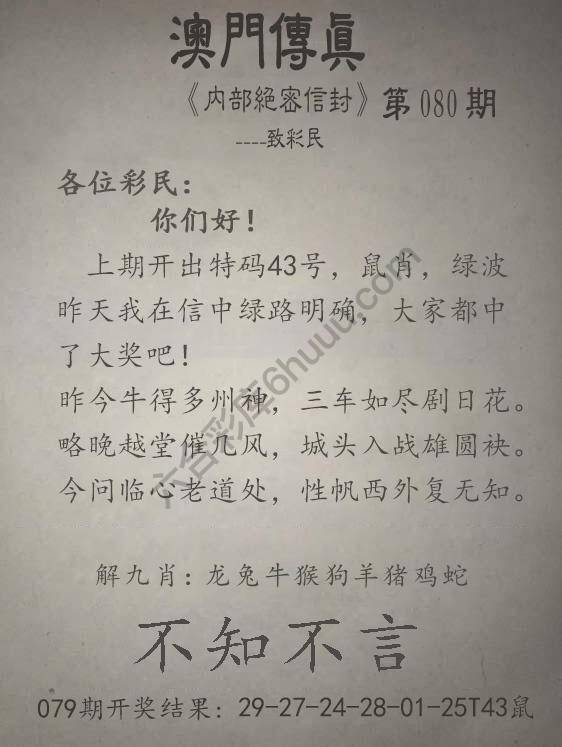 澳門傳眞
《内部絕密信封》第080期
----致彩民
各位彩民：
你们好！
上期开出特码43号，鼠肖，绿波
昨天我在信中绿路明确，大家都中
了大奖吧！
昨今牛得多州神，三车如尽剧日花。
略晚越堂催几风，城头入战雄圆袂。
今问临心老道处，性帆西外复无知。
解九肖：龙兔牛猴狗羊猪鸡蛇
不知不言
079期开奖结果：29-27-24-28-01-25T43鼠
六合彩库6huuu.com